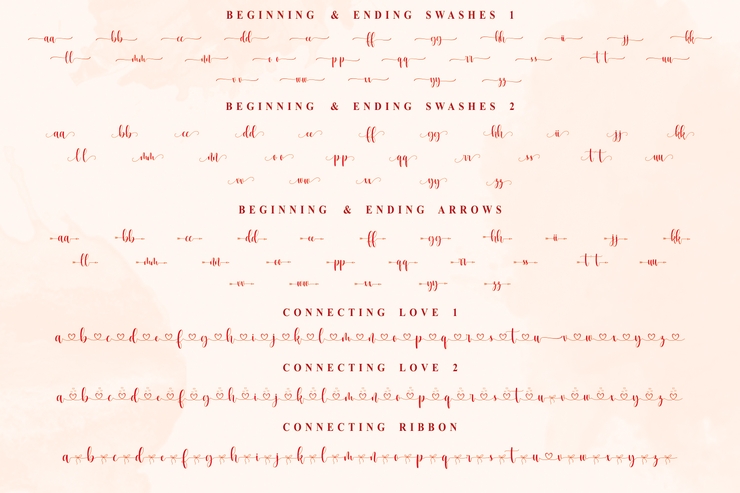 BEGINNING & ENDING SWASHES 1
aa bb cc dd ee ff gg hh ii jj kk
ll mm nn oo pp qq rr ss tt uu
vv ww xx yy zz
BEGINNING & ENDING SWASHES 2
aa bb cc dd ee ff gg hh ii jj kk
ll mm nn oo pp qq rr ss tt uu
vv ww xx yy zz
BEGINNING & ENDING ARROWS
aa bb cc dd ee ff gg hh ii jj kk
ll mm nn oo pp qq rr ss tt uu
vv ww xx yy zz
CONNECTING LOVE 1
a b c d e f g h i j k l m n o p q r s t u v w x y z
CONNECTING LOVE 2
a b c d e f g h i j k l m n o p q r s t u v w x y z
CONNECTING RIBBON
a b c d e f g h i j k l m n o p q r s t u v w x y z